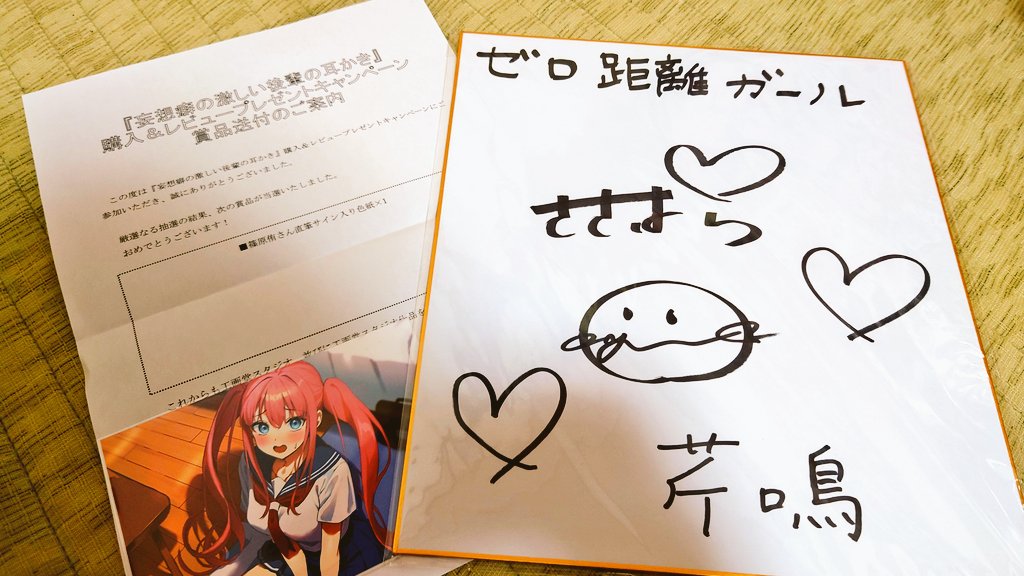 『妄想癖の激しい後輩の耳かき』
購入＆レビュープレゼントキャンペーン
賞品送付のご案内
この度は『妄想癖の激しい後輩の耳かき』購入＆レビュープレゼントキャンペーンにご
参加いただき、誠にありがとうございました。
厳選なる抽選の結果、次の賞品が当選いたしました。
おめでとうございます！
■篠原侑さん直筆サイン入り色紙×1
これからも工画堂スタジオ
ゼロ距離ガール
ささはら
芹鳴